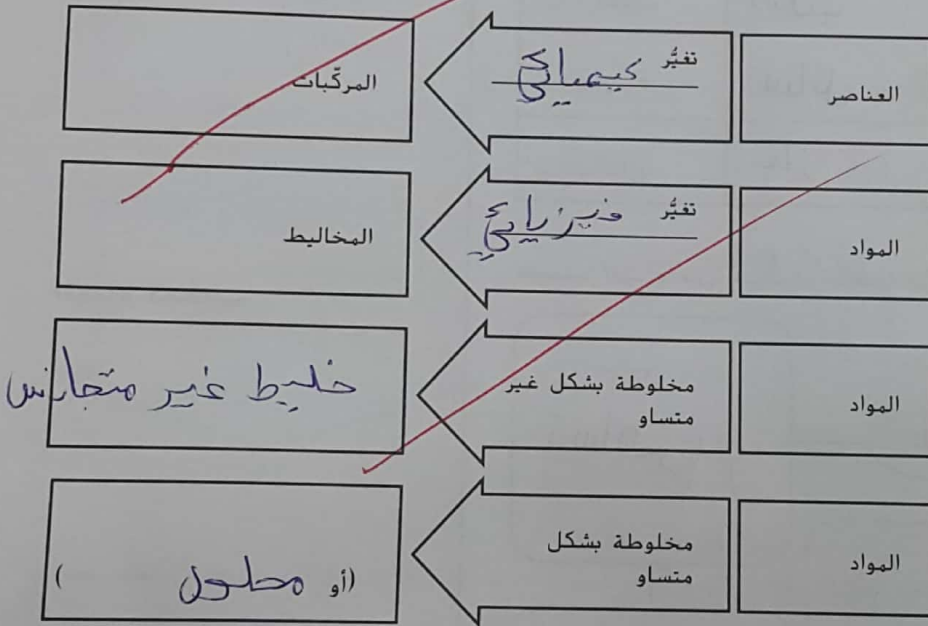 العناصر
تغيُّر كيميائي
المركّبات
المواد
تغيُّر فيزيائي
المخاليط
المواد
مخلوطة بشكل غير
متساو
خليط غير متجانس
المواد
مخلوطة بشكل
متساو
(أو محلول )